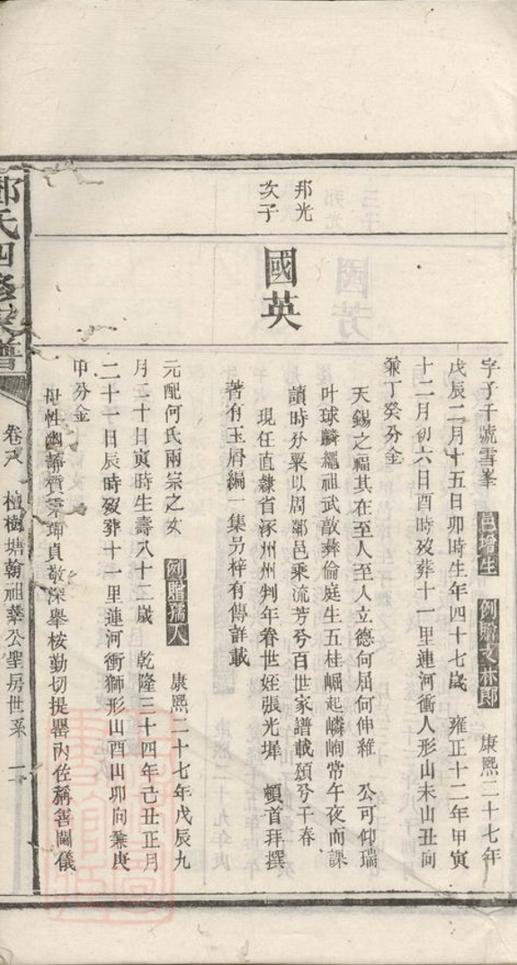 邦光
次子
國英
字子千號雪峯 邑增生 例贈文林郎 康熙二十七年
戊辰二月十五日卯時生年四十七歲 雍正十二年甲寅
十二月初六日酉時歿葬十一里連河衝人形山未山丑向
兼丁癸分金
天錫之福其在至人至人立德何屈何伸雜 公可仰瑞
叶球麟繩祖武敵彜倫庭生五桂崛起嶙峋常午夜而課
讀時分粟以周鄰邑乘流芳兮百世家譜載頌兮千春
現任直隸省涿州州判年眷世姪張光墀 頓首拜撰
著有玉屑編一集另梓有傳詳載
元配何氏兩宗之女 例贈孺人 康熙二十七年戊辰九
月二十日寅時生壽八十二歲 乾隆三十四年己丑正月
二十一日辰時歿葬十一里連河衝獅形山酉山卯向兼庚
甲分金
母性幽靜質秉坤貞敬深舉桉勤切提罌內佐稱善閫儀
氏四修家譜
卷八 柏樹塘翰祖華公聖房世系